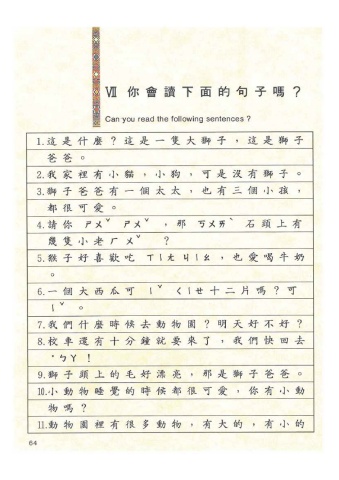 Ⅶ 你會讀下面的句子嗎？
Can you read the following sentences ?
1.這是什麼？這是一隻大獅子，這是獅子
爸爸。
2.我家裡有小貓，小狗，可是沒有獅子。
3.獅子爸爸有一個太太，也有三個小孩，
都很可愛。
4.請你ㄕㄨˇ ㄕㄨˇ，那ㄎㄨㄞˋ石頭上有
幾隻小老ㄏㄨˇ？
5.猴子好喜歡吃ㄒㄧㄤ ㄐㄧㄠ，也愛喝牛奶
。
6.一個大西瓜可ㄧˇ ㄑㄧㄝ十二片嗎？可
ㄧˇ。
7.我們什麼時候去動物園？明天好不好？
8.校車還有十分鐘就要來了，我們快回去
˙ㄅㄚ！
9.獅子頭上的毛好漂亮，那是獅子爸爸。
10.小動物睡覺的時候都很可愛，你有小動
物嗎？
11.動物園裡有很多動物，有大的，有小的
64